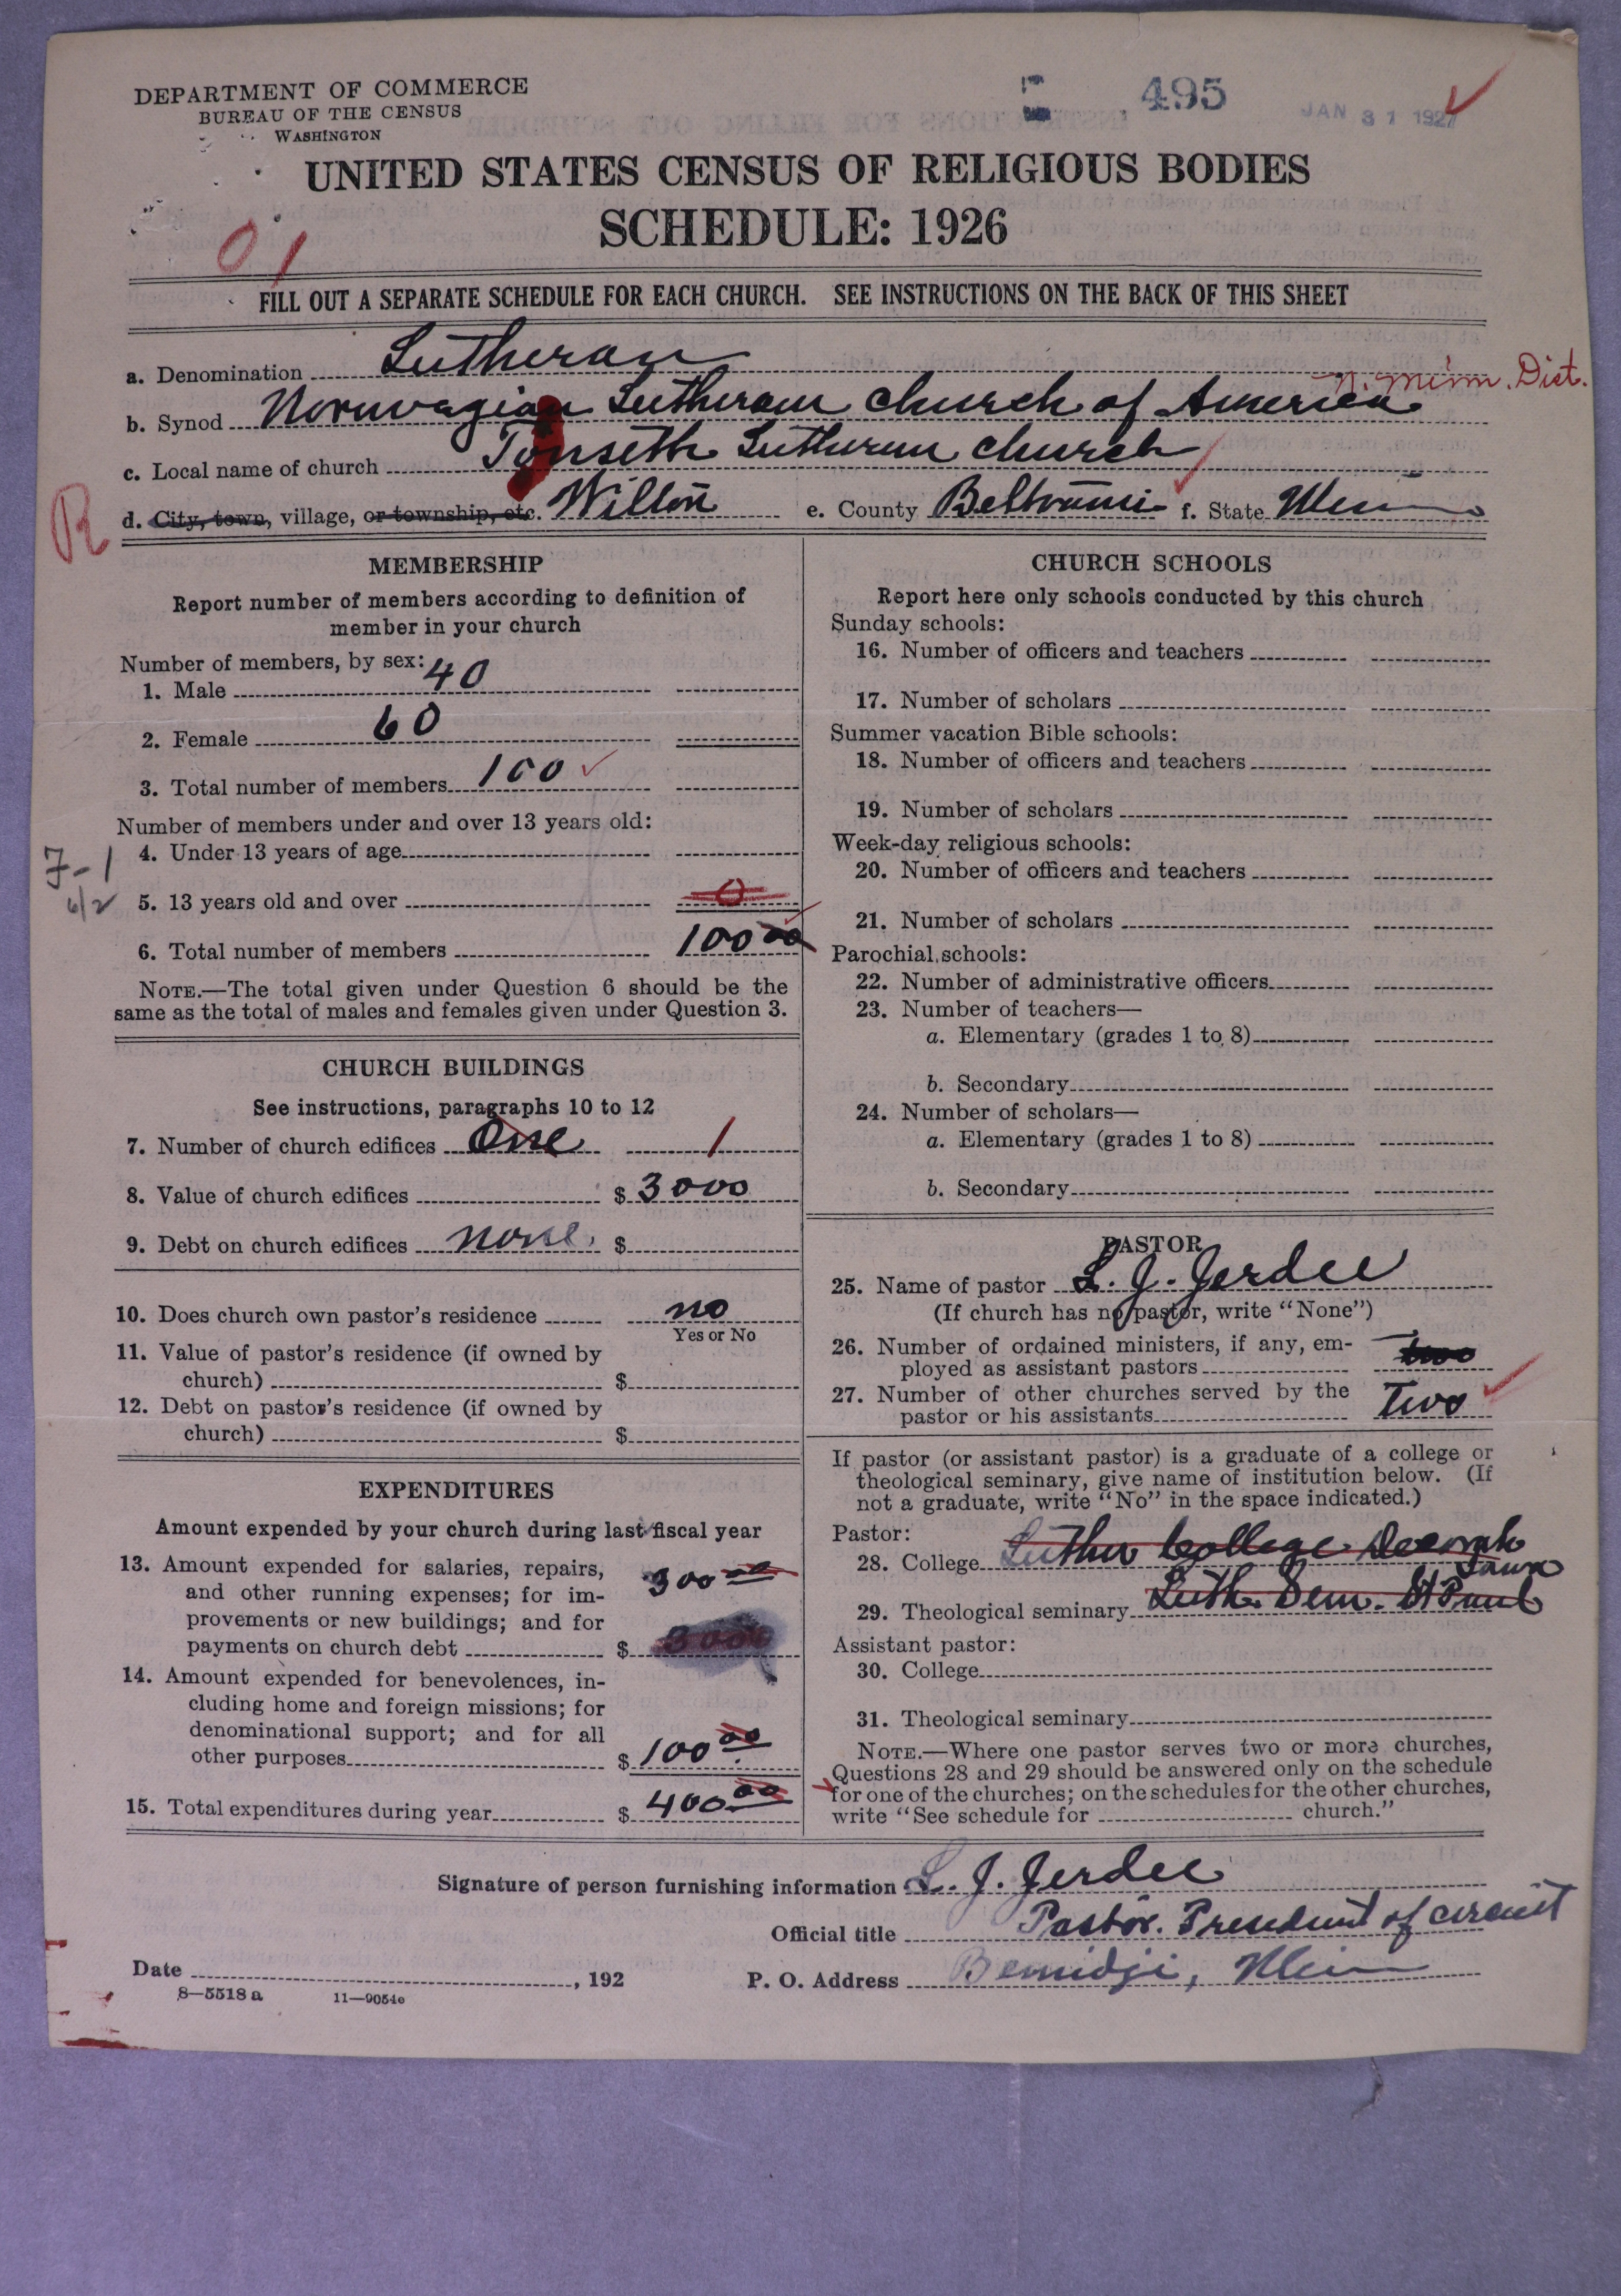 DEPARTMENT OF COMMERCE
BUREAU OF THE CENSUS
WASHINGTON
495
JAN 31 1927
UNITED STATES CENSUS OF RELIGIOUS BODIES
SCHEDULE: 1926
01
FILL OUT A SEPARATE SCHEDULE FOR EACH CHURCH. SEE INSTRUCTIONS ON THE BACK OF THIS SHEET
a. Denomination Lutheran
N. Minn. Dist.
b. Synod Noruvagian Lutheran Church of America
c. Local name of church Tonseth Lutheran Church
R
d. City, town, village, or township, etc. Wilton e. County Beltrami f. State Minn
MEMBERSHIP
Report number of members according to definition of
member in your church
Number of members, by sex:
1. Male 40
2. Female 60
3. Total number of members 100
Number of members under and over 13 years old:
4. Under 13 years of age
7-1
6/2
5. 13 years old and over 0
6. Total number of members 100 00
NOTE.—The total given under Question 6 should be the
same as the total of males and females given under Question 3.
CHURCH BUILDINGS
See instructions, paragraphs 10 to 12
7. Number of church edifices One 1
8. Value of church edifices $ 3000
9. Debt on church edifices none. $
10. Does church own pastor's residence no
Yes or No
11. Value of pastor's residence (if owned by
church) $
12. Debt on pastor's residence (if owned by
church) $
EXPENDITURES
Amount expended by your church during last fiscal year
13. Amount expended for salaries, repairs,
and other running expenses; for im-
provements or new buildings; and for
payments on church debt $
300 00
14. Amount expended for benevolences, in-
cluding home and foreign missions; for
denominational support; and for all
other purposes $ 100 00
15. Total expenditures during year $ 400 00
CHURCH SCHOOLS
Report here only schools conducted by this church
Sunday schools:
16. Number of officers and teachers
17. Number of scholars
Summer vacation Bible schools:
18. Number of officers and teachers
19. Number of scholars
Week-day religious schools:
20. Number of officers and teachers
21. Number of scholars
Parochial schools:
22. Number of administrative officers
23. Number of teachers—
a. Elementary (grades 1 to 8)
b. Secondary
24. Number of scholars—
a. Elementary (grades 1 to 8)
b. Secondary
PASTOR
25. Name of pastor L. J. Jerdee
(If church has no pastor, write "None")
26. Number of ordained ministers, if any, em-
ployed as assistant pastors two
27. Number of other churches served by the
pastor or his assistants Two
If pastor (or assistant pastor) is a graduate of a college or
theological seminary, give name of institution below. (If
not a graduate, write "No" in the space indicated.)
Pastor:
28. College Luther College Decorah
Iowa
29. Theological seminary Luth. Sem. St Paul
Assistant pastor:
30. College
31. Theological seminary
NOTE.—Where one pastor serves two or more churches,
Questions 28 and 29 should be answered only on the schedule
for one of the churches; on the schedules for the other churches,
write "See schedule for church."
Signature of person furnishing information L. J. Jerdee
Official title Pastor. President of circuit
Date , 192
P. O. Address Bemidji, Minn
8—5518 a 11—9054c